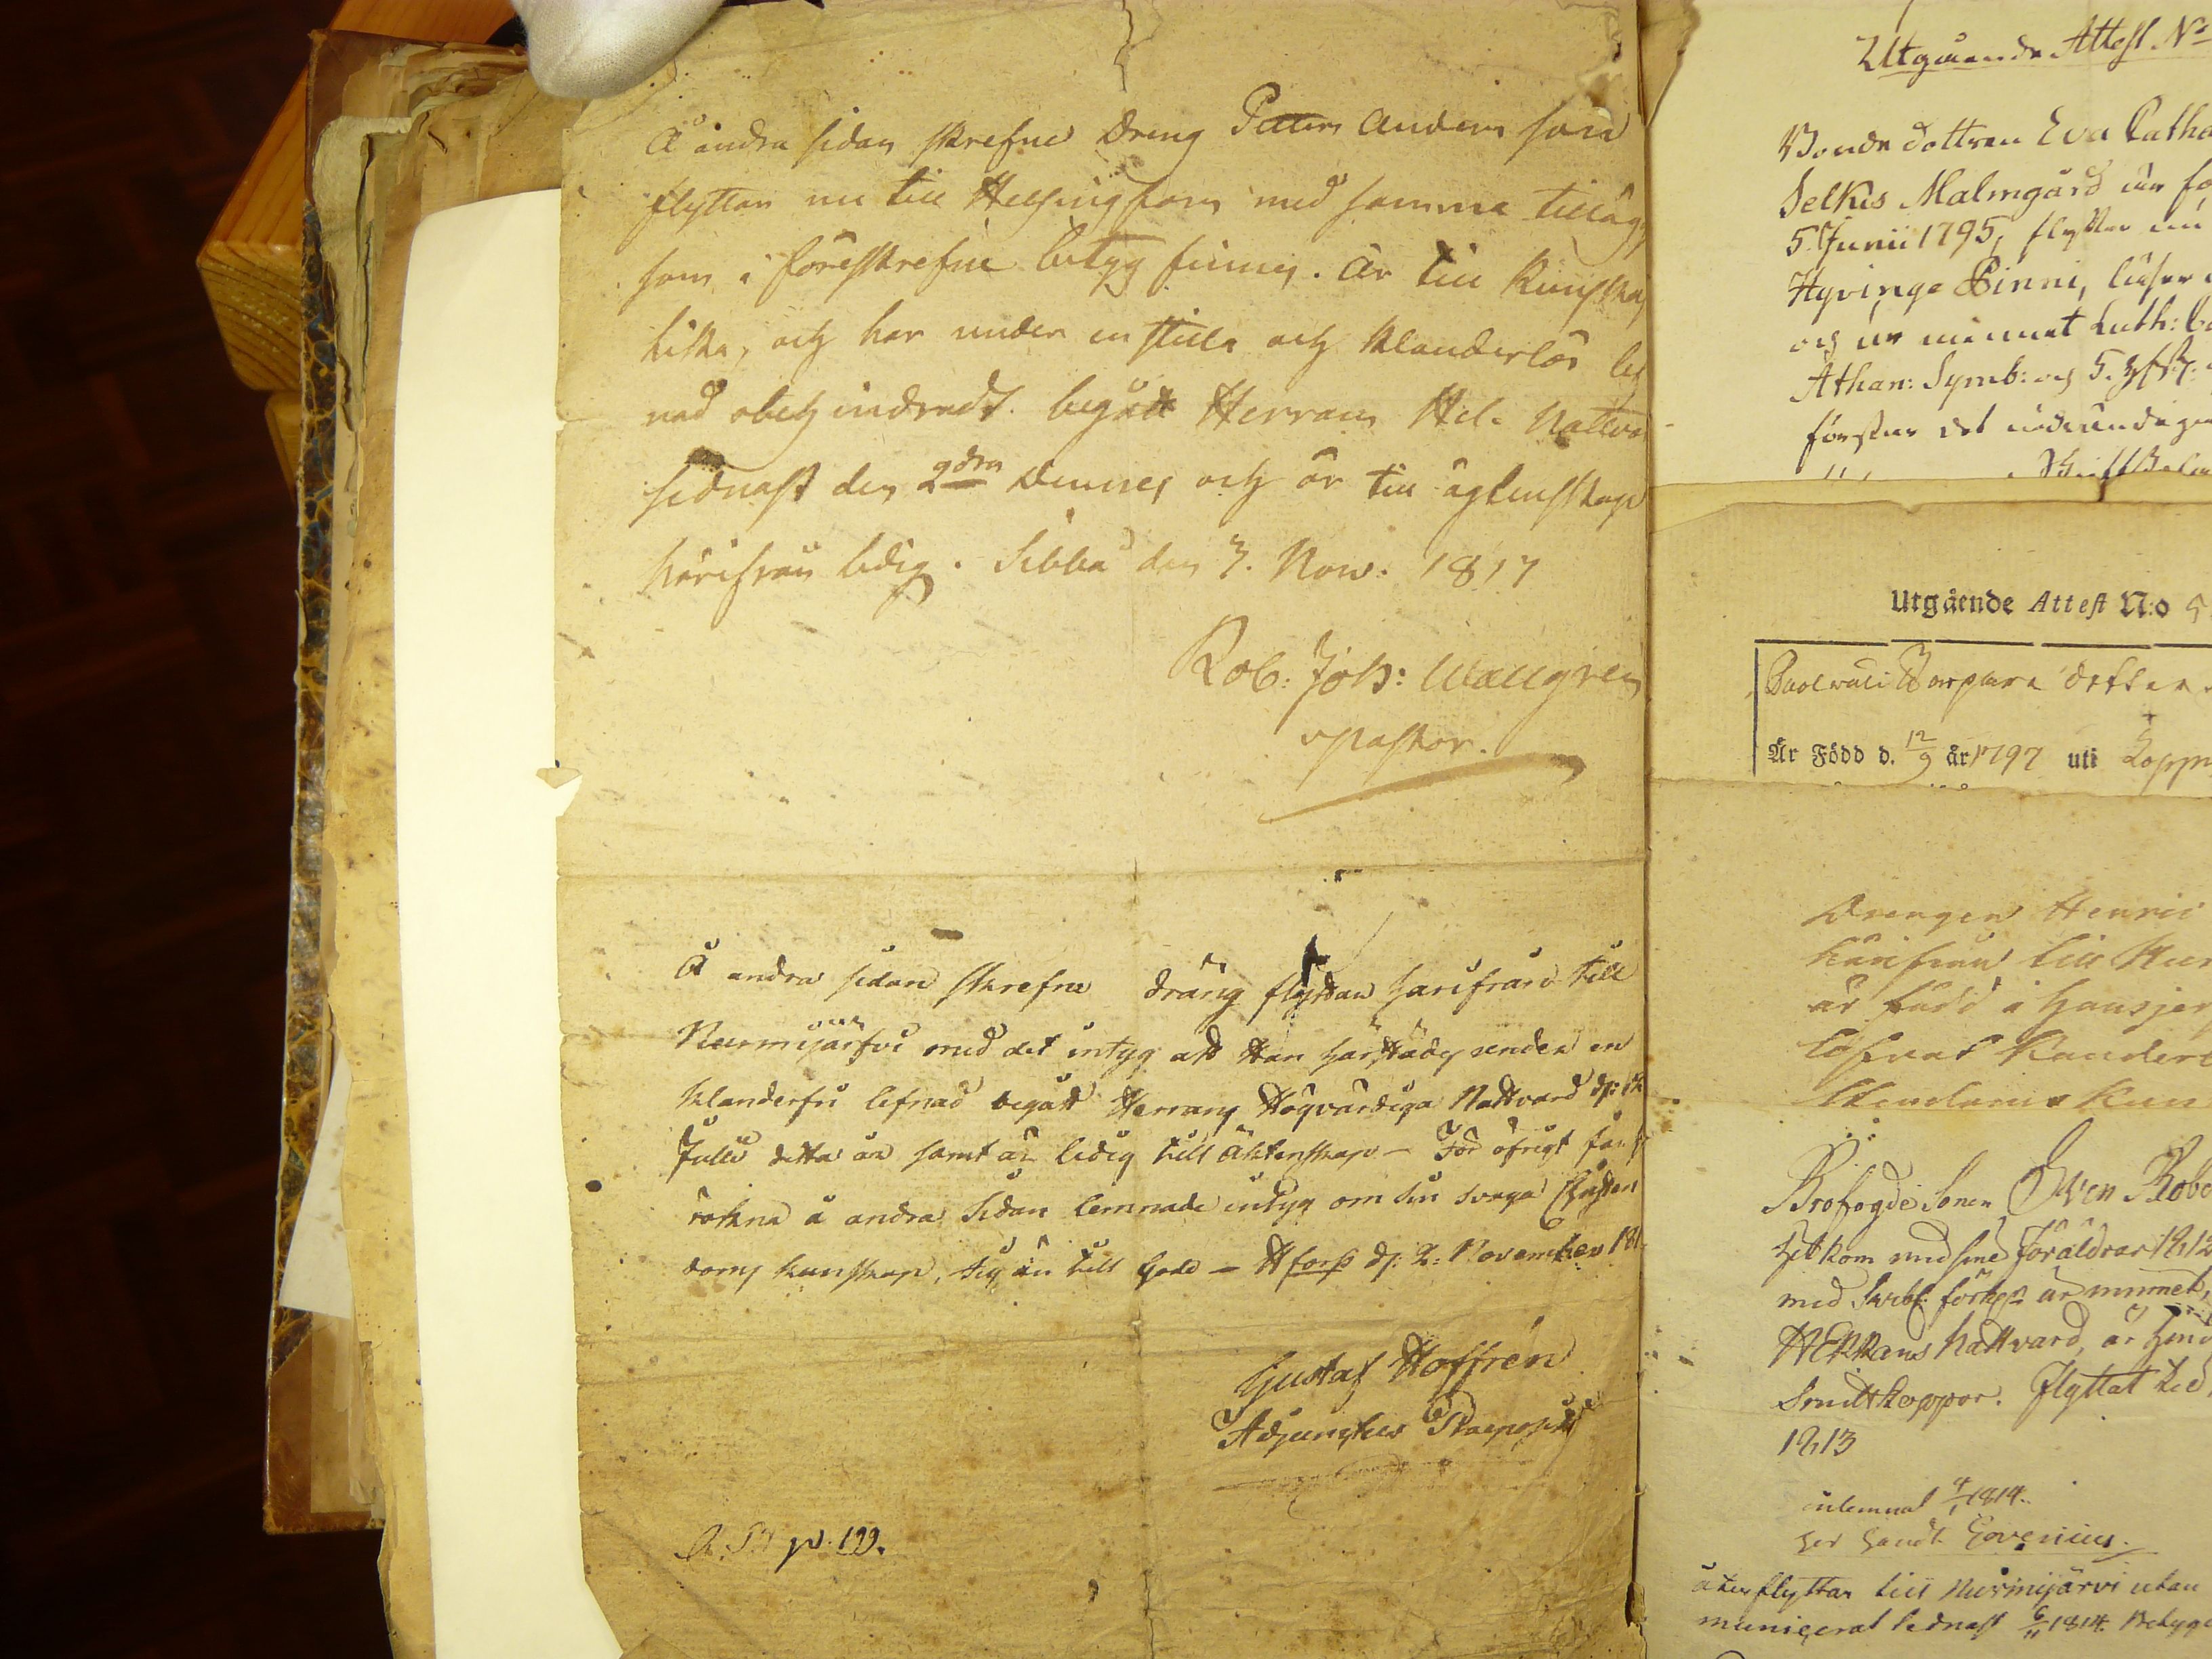 Å andra sidan skrefne Dreng Petter Anders som
flyttar nu till Helsingfors med samma tillägg
som i föreskrefne betyg finnes. är till kunskap
lika, och har under en stilla och klanderlös lef
nad obehindradt begått Herrans Hel. Nattvar
sednast den 2dra Dennes och är till ägtenskap
härifrån ledig. Sibbå den 7. Nov: 1817
Rob: Joh: Wallgren
v pastor.
Å andra sidan skrefne dräng flyttar härifrån till
Nurmijärfvi med det intyg att Han härstädes under en
klanderfri lefnad begått Herrans Högvördiga Nattvard d:
Julii detta år samt är ledig till Äktenskap – För öfrigt får
räkna å andra sidan lemnade intyg om sin svaga Christen
doms kunskap, sig än till godo – Hfors d: 2: November 181
Gustaf Hoffrén
Adjunctus
p. 199.
Utgående Attest No
Bonde dottren Eva Catha
Selkis Malmgård är fö
5 Junii 1795, flyttar nu
Hyvinge Pinni, läser
och ur minnet Luth: C
Athan: Symb: och S.
förstår det
Utgående Attest N:o 5
Torpare dotter
Är Född d. 12/9 år 1797 uti Lopp
Drengen Henric
härifrån till Nur
är född i Hausjer
Brofogde Sonen Sven Robe
hit kom med sine Föräldrar 1812
med Skrif. förkl. ur minnet,
HERRans Nattvard, är
Smittkoppor. Flyttat
1813
inlemnat 4/1 1814.
återflyttar till Nurmijärvi utan
municerat sednast 6/11 1814. Betyga